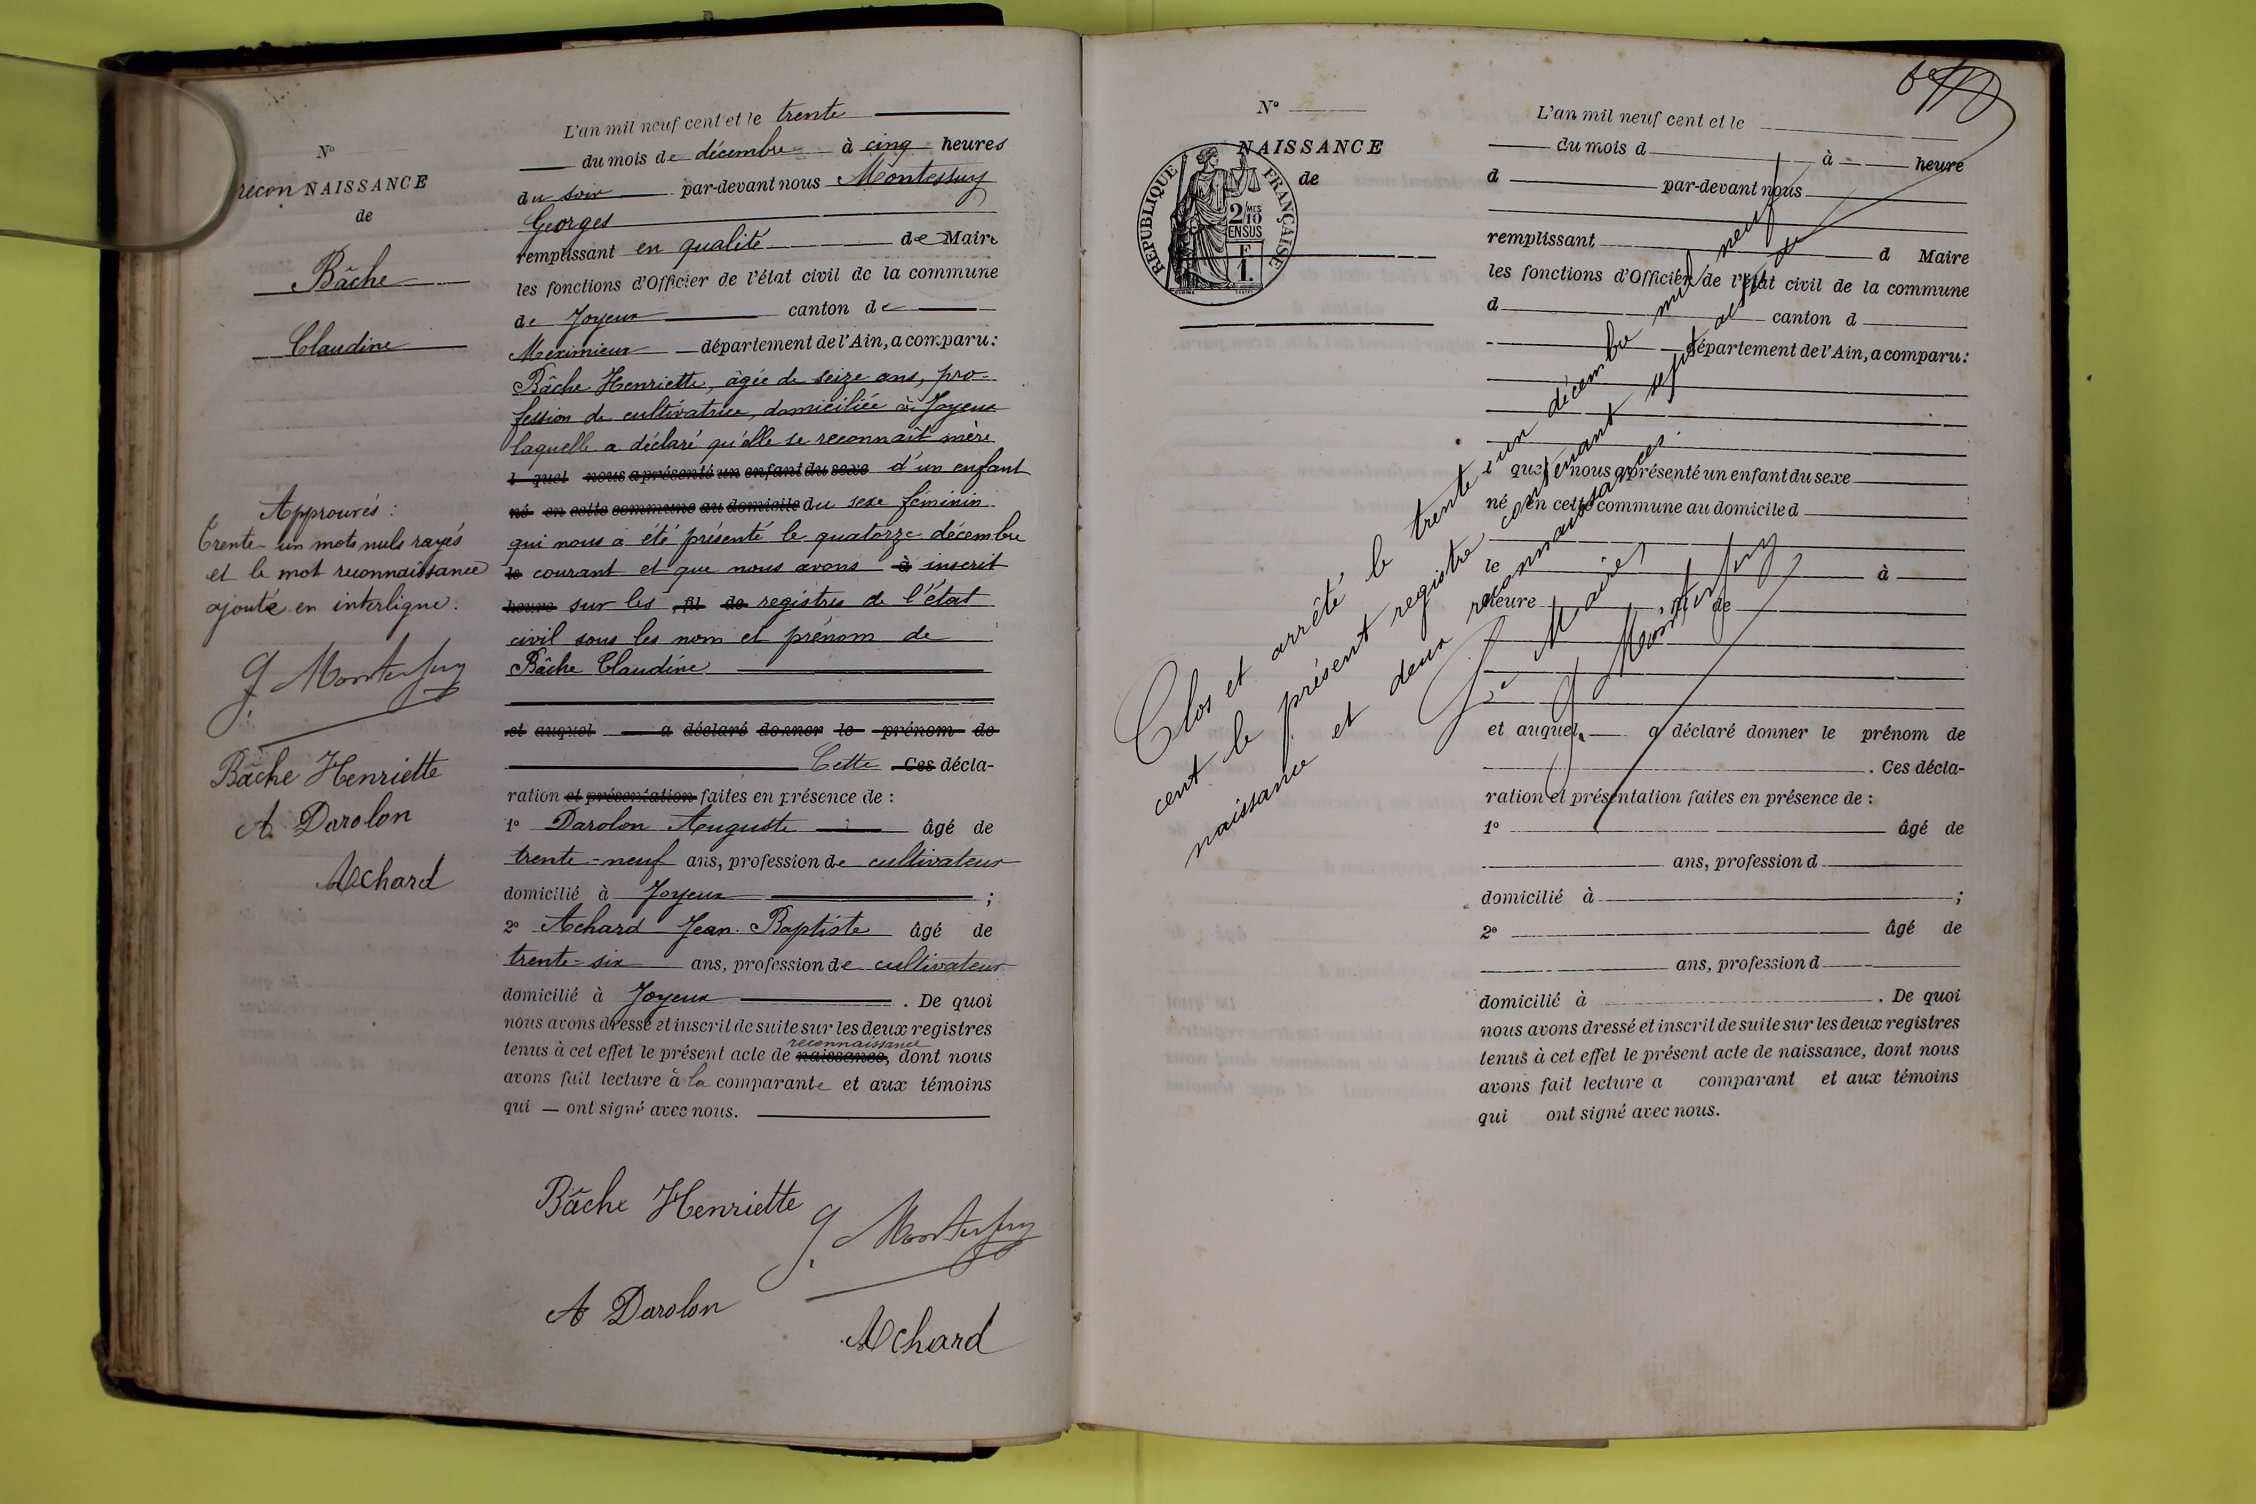 N°
reconNAISSANCE
de
Bâche
Claudine
Approuvés :
Trente-un mots nuls rayés
et le mot reconnaissance
ajouté en interligne.
G. Montessuy
Bâche Henriette
A. Darolon
Achard
L'an mil neuf cent et le trente
du mois de décembre à cinq heures
du soir par-devant nous Montessuy
Georges
remplissant en qualité de Maire
les fonctions d'Officier de l'état civil de la commune
de Joyeux canton de
Meximieux département de l'Ain, a comparu :
Bâche Henriette, âgée de seize ans, pro=
fession de cultivatrice, domiciliée à Joyeux
laquelle a déclaré qu'elle se reconnaît mère
l quel nous a présenté un enfant du sexe d'un enfant
né en cette commune au domicile du sexe féminin
qui nous a été présenté le quatorze décembre
le courant et que nous avons à inscrit
heure sur les fil de registres de l'état
civil sous les nom et prénom de
Bâche Claudine
et auquel a déclaré donner le prénom de
Cette Ces décla-
ration et présentation faites en présence de :
1° Darolon Auguste âgé de
trente-neuf ans, profession de cultivateur
domicilié à Joyeux ;
2° Achard Jean-Baptiste âgé de
trente-six ans, profession de cultivateur
domicilié à Joyeux . De quoi
nous avons dressé et inscrit de suite sur les deux registres
reconnaissance
tenus à cet effet le présent acte de naissance, dont nous
avons fait lecture à la comparante et aux témoins
qui — ont signé avec nous.
Bâche Henriette
G. Montessuy
A Darolon
Achard
N°
NAISSANCE
de
REPUBLIQUE FRANÇAISE
2/10 MES
EN SUS
F
1.
L'an mil neuf cent et le
du mois d à heure
d par-devant nous
remplissant d Maire
les fonctions d'Officier de l'état civil de la commune
d canton d
département de l'Ain, a comparu :
l quel nous a présenté un enfant du sexe
né en cette commune au domicile d
le à
heure de
et auquel a déclaré donner le prénom de
. Ces décla-
ration et présentation faites en présence de :
1° âgé de
ans, profession d
domicilié à ;
2° âgé de
ans, profession d
domicilié à . De quoi
nous avons dressé et inscrit de suite sur les deux registres
tenus à cet effet le présent acte de naissance, dont nous
avons fait lecture a comparant et aux témoins
qui ont signé avec nous.
Clos et arrêté le trente-un décembre mil neuf
cent le présent registre contenant sept actes de
naissance et deux reconnaissances.
Le Maire,
G. Montessuy